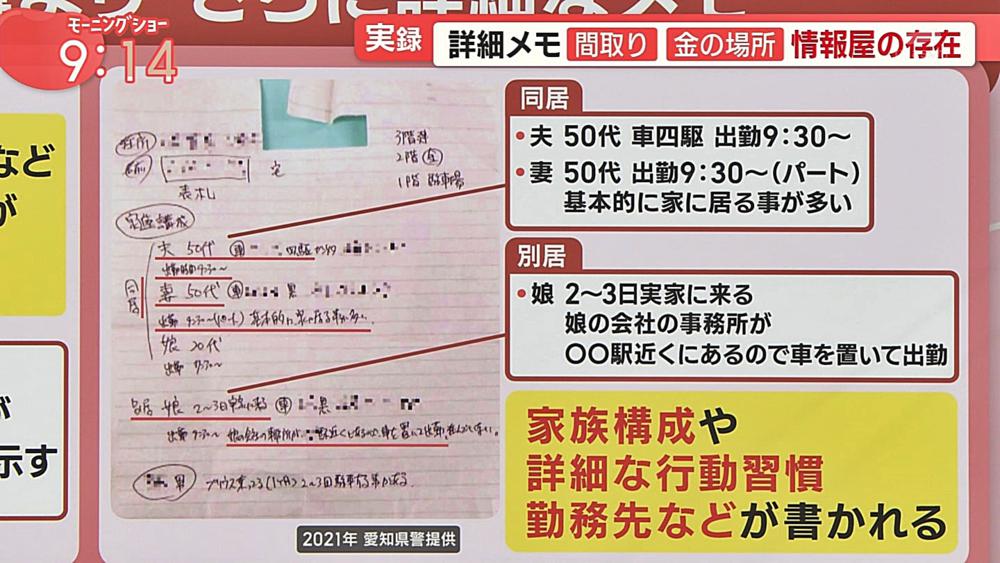 さらに詳細なメモ
モーニングショー
9:14
実録
詳細メモ 間取り 金の場所 情報屋の存在
など
が
が
示す
住所
名前
宅
表札
3階建
2階
1階 駐車場
家族構成
同居
夫 50代
出勤時間9:30〜
妻 50代 黒
出勤 9:30〜(パート) 基本的に家に居る事が多い
娘 20代
出勤
別居 娘 2〜3日実家に来る
出勤 9:30〜 娘の会社の事務所が 駅近くにあるので、車を置いて出勤
同居
・夫 50代 車四駆 出勤9:30〜
・妻 50代 出勤9:30〜(パート)
基本的に家に居る事が多い
別居
・娘 2〜3日実家に来る
娘の会社の事務所が
〇〇駅近くにあるので車を置いて出勤
家族構成や
詳細な行動習慣
勤務先などが書かれる
2021年 愛知県警提供